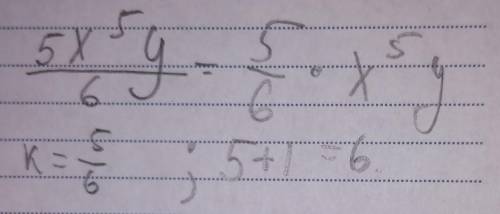 5x⁵y/6 = 5/6 · x⁵y
k = 5/6 ; 5+1=6.